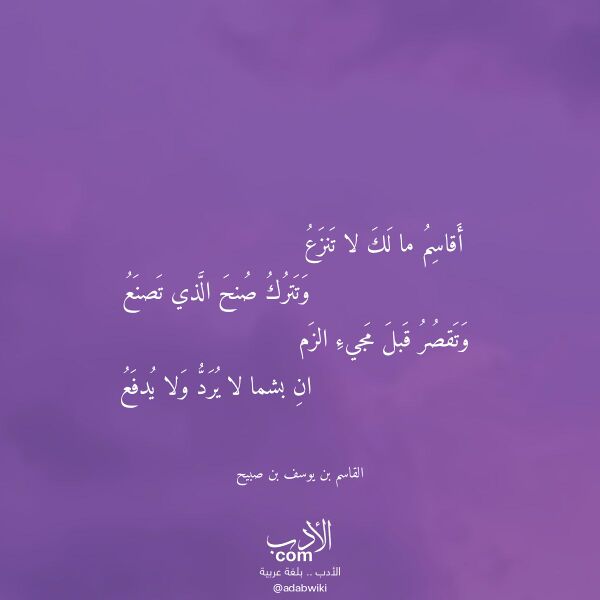 أَقاسِمُ ما لَكَ لا تَنزَعُ
وَتَترُكُ صُنحَ الَّذي تَصنَعُ
وَتَقصُرُ قَبلَ مَجيءِ الزَم
انِ بشما لا يُرَدُّ وَلا يُدفَعُ
القاسم بن يوسف بن صبيح
الأدب
com
الأدب .. بلغة عربية
@adabwiki